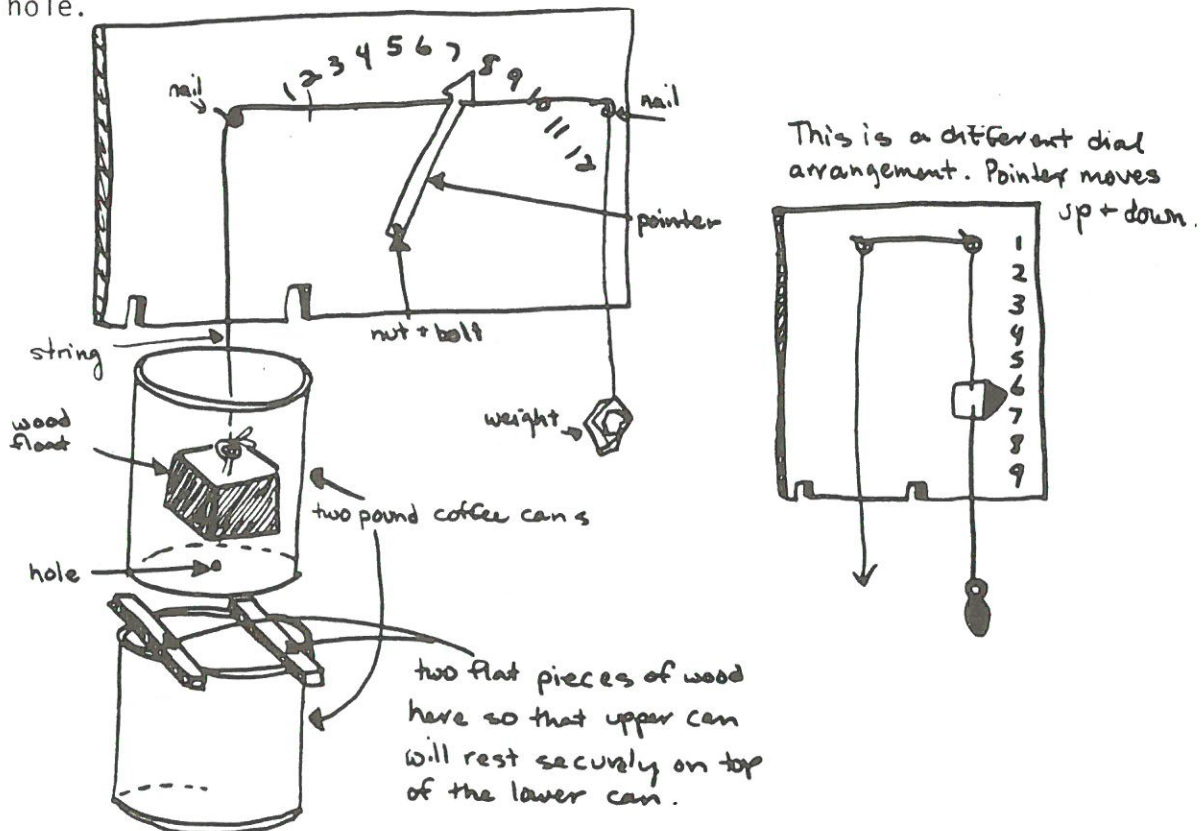 hole.
nail
1 2 3 4 5 6 7 8 9 10 11 12
nail
pointer
nut + bolt
string
weight
wood
float
two pound coffee cans
hole
two flat pieces of wood
here so that upper can
will rest securely on top
of the lower can.
This is a different dial
arrangement. Pointer moves
up + down.
1
2
3
4
5
6
7
8
9